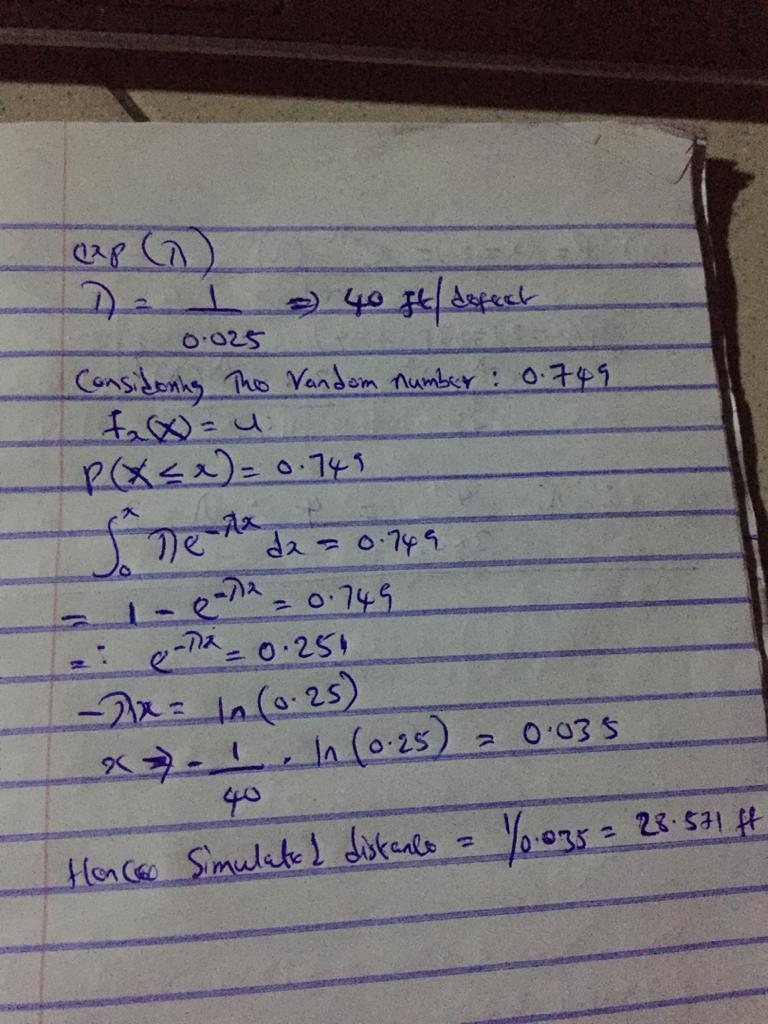 exp (λ)
λ = 1/0.025 ⇒ 40 ft/defect
Considering The random number : 0.749
Fx(x) = u
P(X ≤ x) = 0.749
∫₀ˣ λe^-λx dx = 0.749
= 1 - e^-λx = 0.749
=: e^-λx = 0.251
-λx = ln(0.25)
x ⇒ - 1/40 . ln(0.25) = 0.035
Hence Simulated distance = 1/0.035 = 28.571 ft